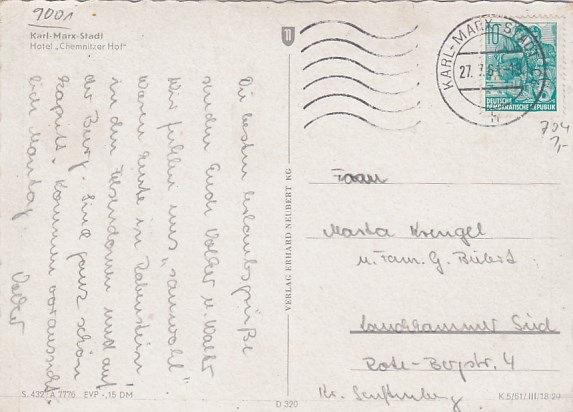 9001
Karl-Marx-Stadt
Hotel „Chemnitzer Hof"
Die besten Urlaubsgrüße
senden Euch Volker u. Walter
Wir fühlen uns „sauwohl"
Waren heute in Rabenstein
in den Felsendomen und auf
der Burg. Sind ganz schön
kaputt. Kommen voraussicht.
bis Montag.
Volker
VERLAG ERHARD NEUBERT KG
KARL-MARX-STADT
27. 7. 6
10
DEUTSCHE
DEMOKRATISCHE REPUBLIK
704
7,-
Fam
Marta Krengel
u. Fam. G.
Lauchhammer Süd
Rote-Bergstr. 4
Kr. Senftenberg
S. 432/A 7776 EVP -,15 DM
D 320
K 5/61/III/18 29